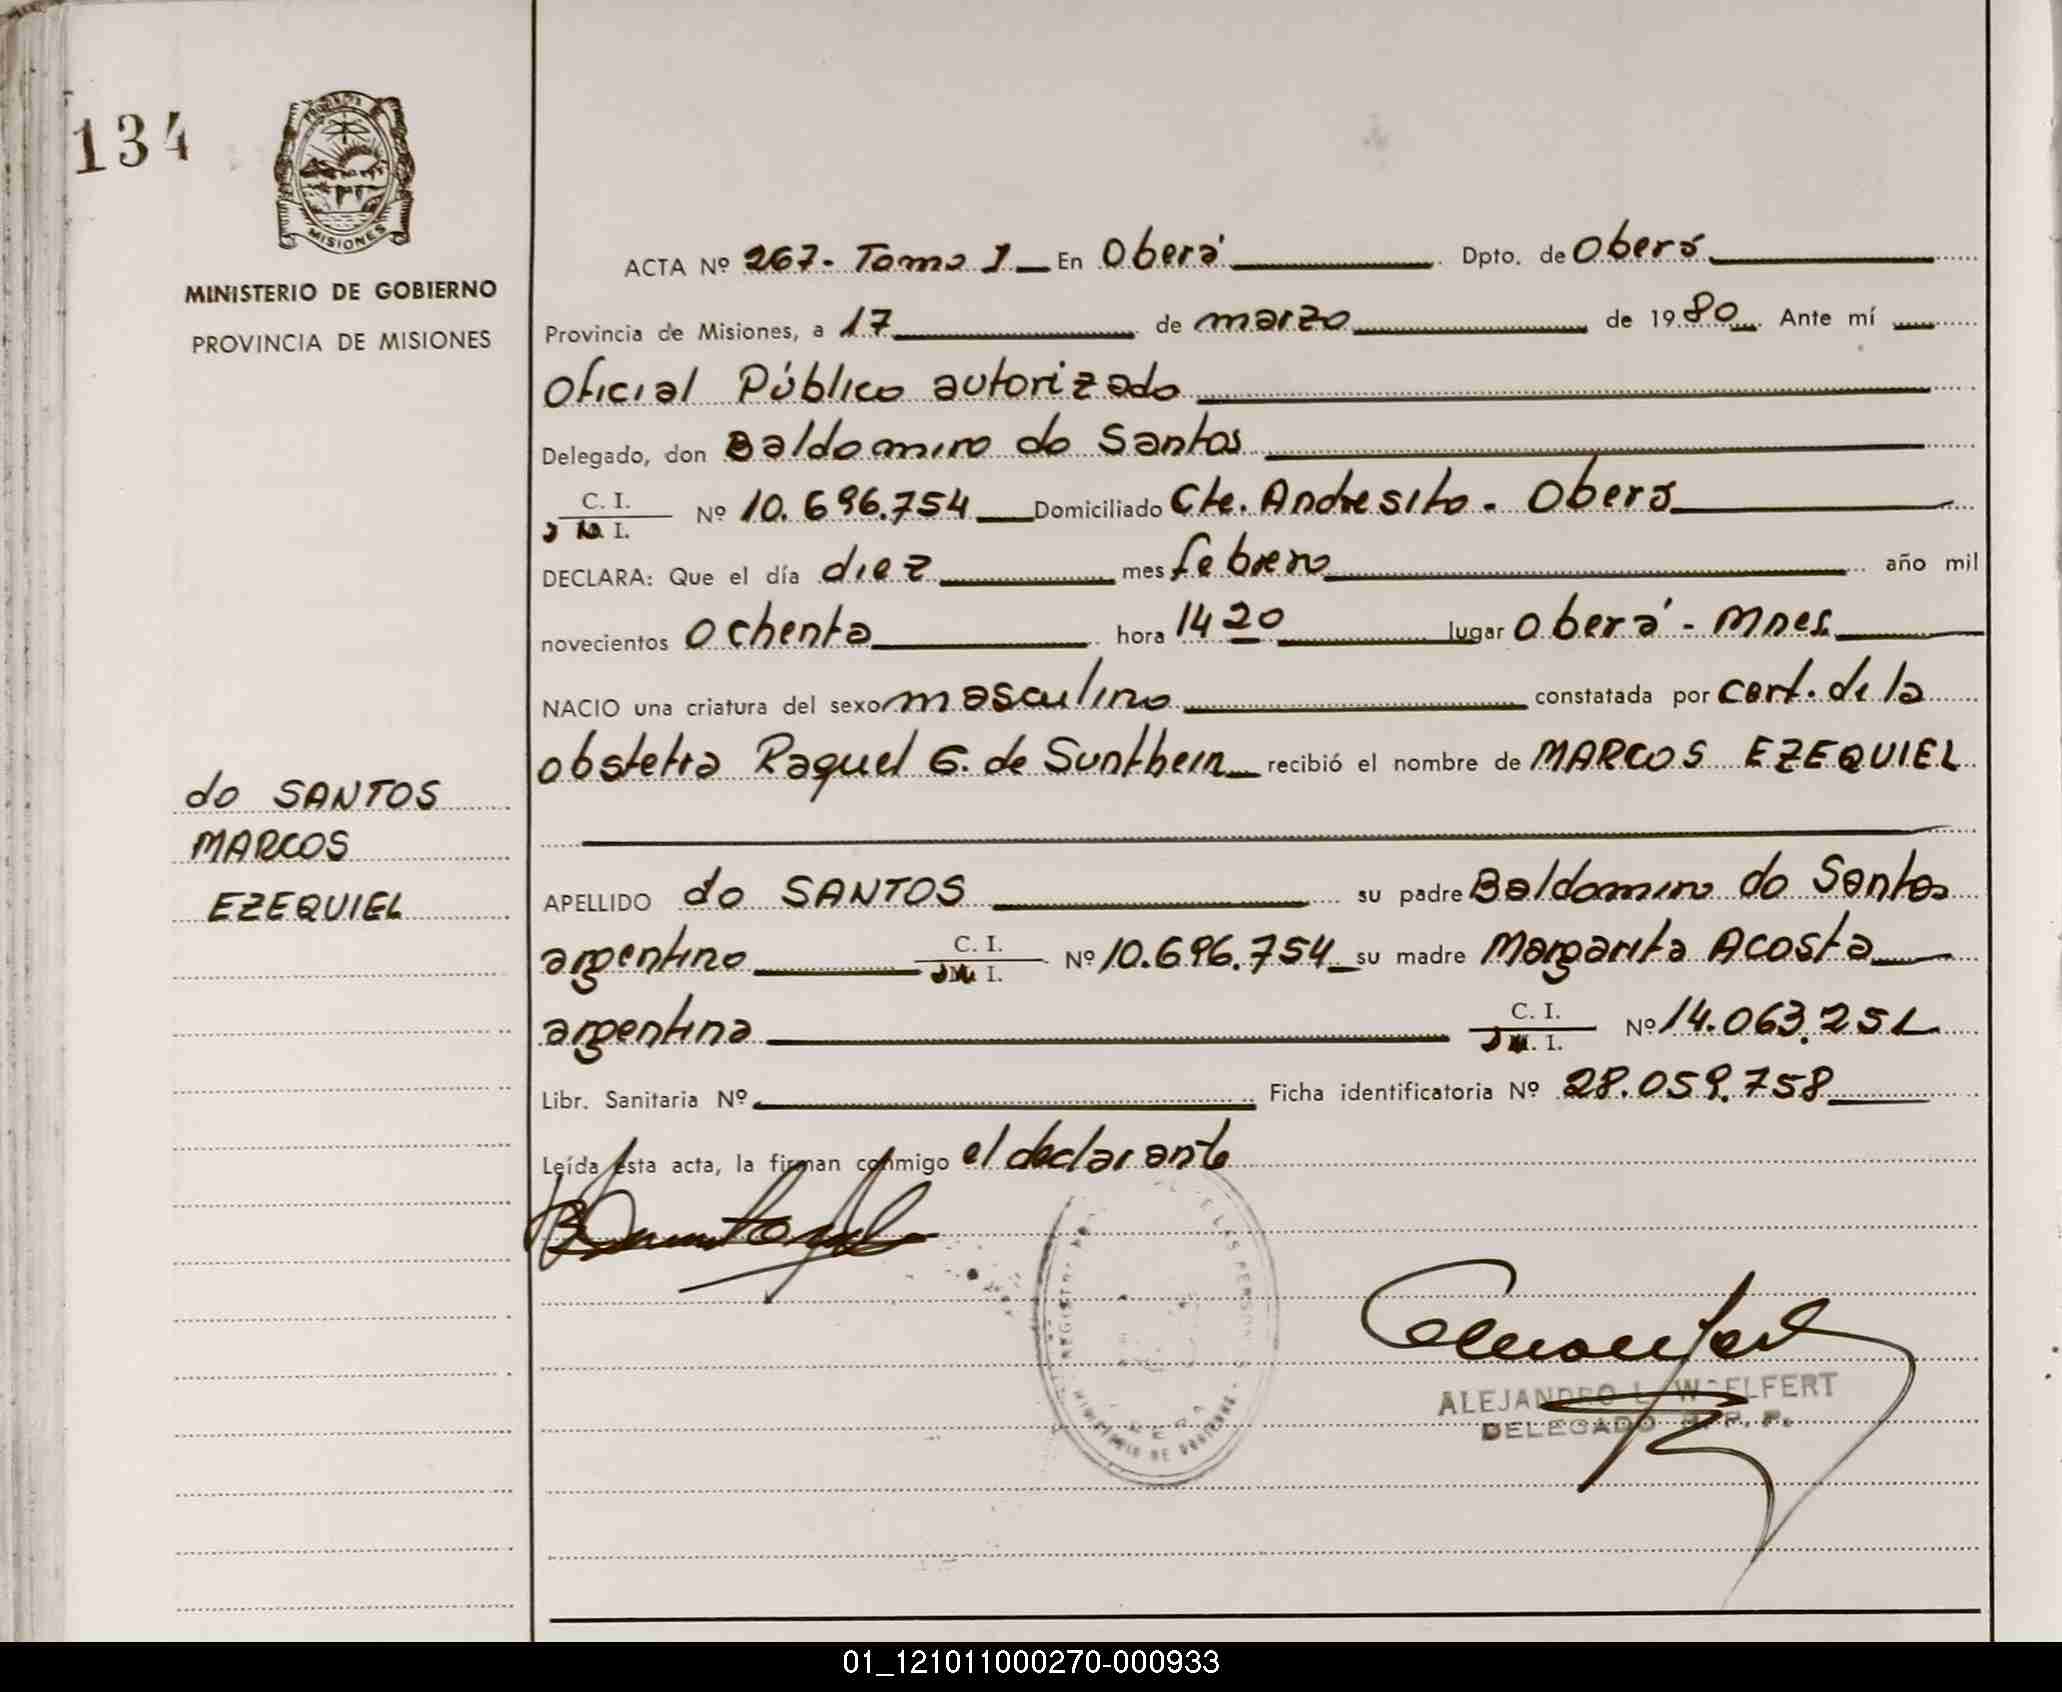 134
PROVINCIA DE
MISIONES
MINISTERIO DE GOBIERNO
PROVINCIA DE MISIONES
do SANTOS
MARCOS
EZEQUIEL
ACTA Nº 267. Tomo 1 En Oberá Dpto. de Oberá
Provincia de Misiones, a 17 de marzo de 1980 Ante mí
Oficial Público autorizado
Delegado, don Baldomiro do Santos
C. I.
I. Nº 10.696.754 Domiciliado Cte. Andresito - Oberá
DECLARA: Que el día diez mes febrero año mil
novecientos ochenta hora 14 20 lugar Oberá - Mnes
NACIO una criatura del sexo masculino constatada por cert. de la
obstetra Raquel G. de Sunthein recibió el nombre de MARCOS EZEQUIEL
APELLIDO do SANTOS su padre Baldomiro do Santos
argentino C. I. I. Nº 10.696.754 su madre Margarita Acosta
argentina C. I. I. Nº 14.063.251
Libr. Sanitaria Nº Ficha identificatoria Nº 28.059.758
Leída esta acta, la firman conmigo el declarante
MINISTERIO DE GOBIERNO
ALEJANDRO L. WOELFERT
DELEGADO R. P. P.
01_121011000270-000933